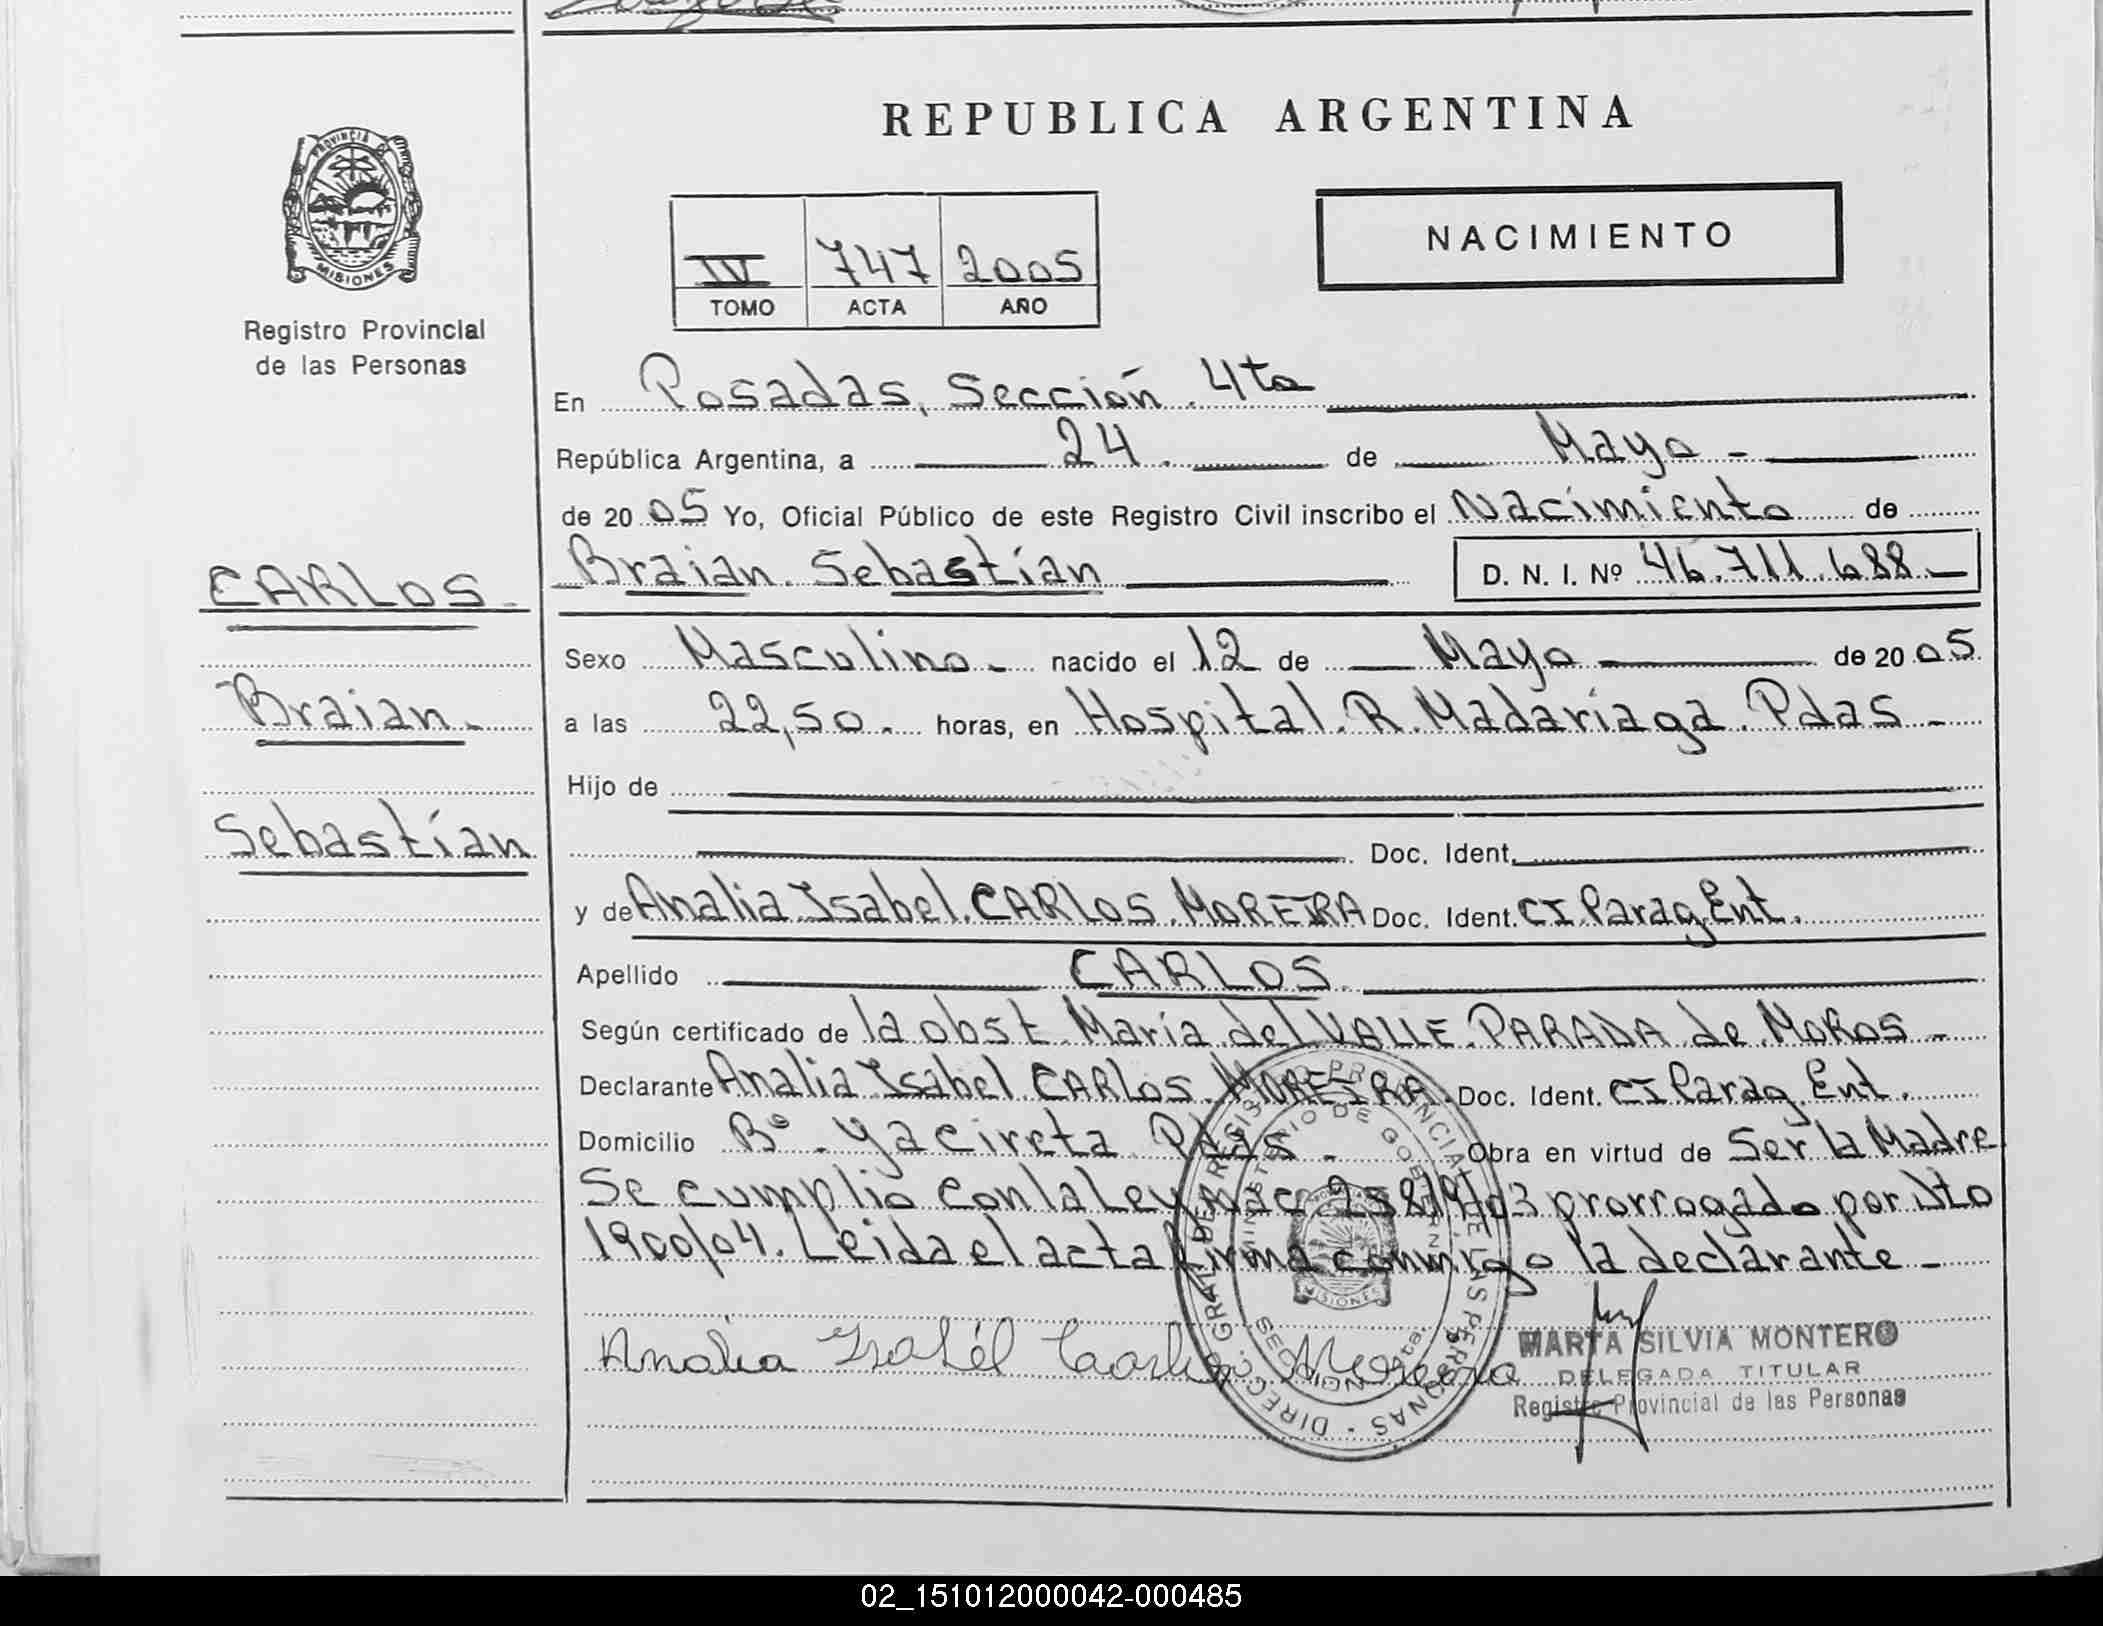 REPUBLICA ARGENTINA
PROVINCIA DE MISIONES
Registro Provincial
de las Personas
NACIMIENTO
IV 747 2005
TOMO ACTA AÑO
En Posadas, Sección 4ta
República Argentina, a 24 de Mayo -
de 20 05 Yo, Oficial Público de este Registro Civil inscribo el Nacimiento de
Braian Sebastían D. N. I. Nº 46.711.688.-
CARLOS
Braian
Sebastían
Sexo Masculino - nacido el 12 de Mayo de 20 05
a las 22,50 - horas, en Hospital R. Madariaga Pdas -
Hijo de
Doc. Ident.
y de Analia Isabel CARLOS MOREIRA Doc. Ident. CI Parag Ent.
Apellido CARLOS
Según certificado de la obst María del VALLE PARADA de MOROS -
Declarante Analia Isabel CARLOS MOREIRA Doc. Ident. CI Parag Ent.
Domicilio Bº Yacireta Pdas - Obra en virtud de Ser la Madre
Se cumplio con la Ley Nac 25819/03 prorrogado por Dto
1900/04. Leida el acta firma conmigo la declarante -
Analia Isabél Carlos Moreira
DIRECC. GRAL. DEL REGISTRO PROVINCIAL DE LAS PERSONAS
MINISTERIO DE GOBIERNO
SECCION 4ta.
MISIONES
MARTA SILVIA MONTERO
DELEGADA TITULAR
Registro Provincial de las Personas
02_151012000042-000485